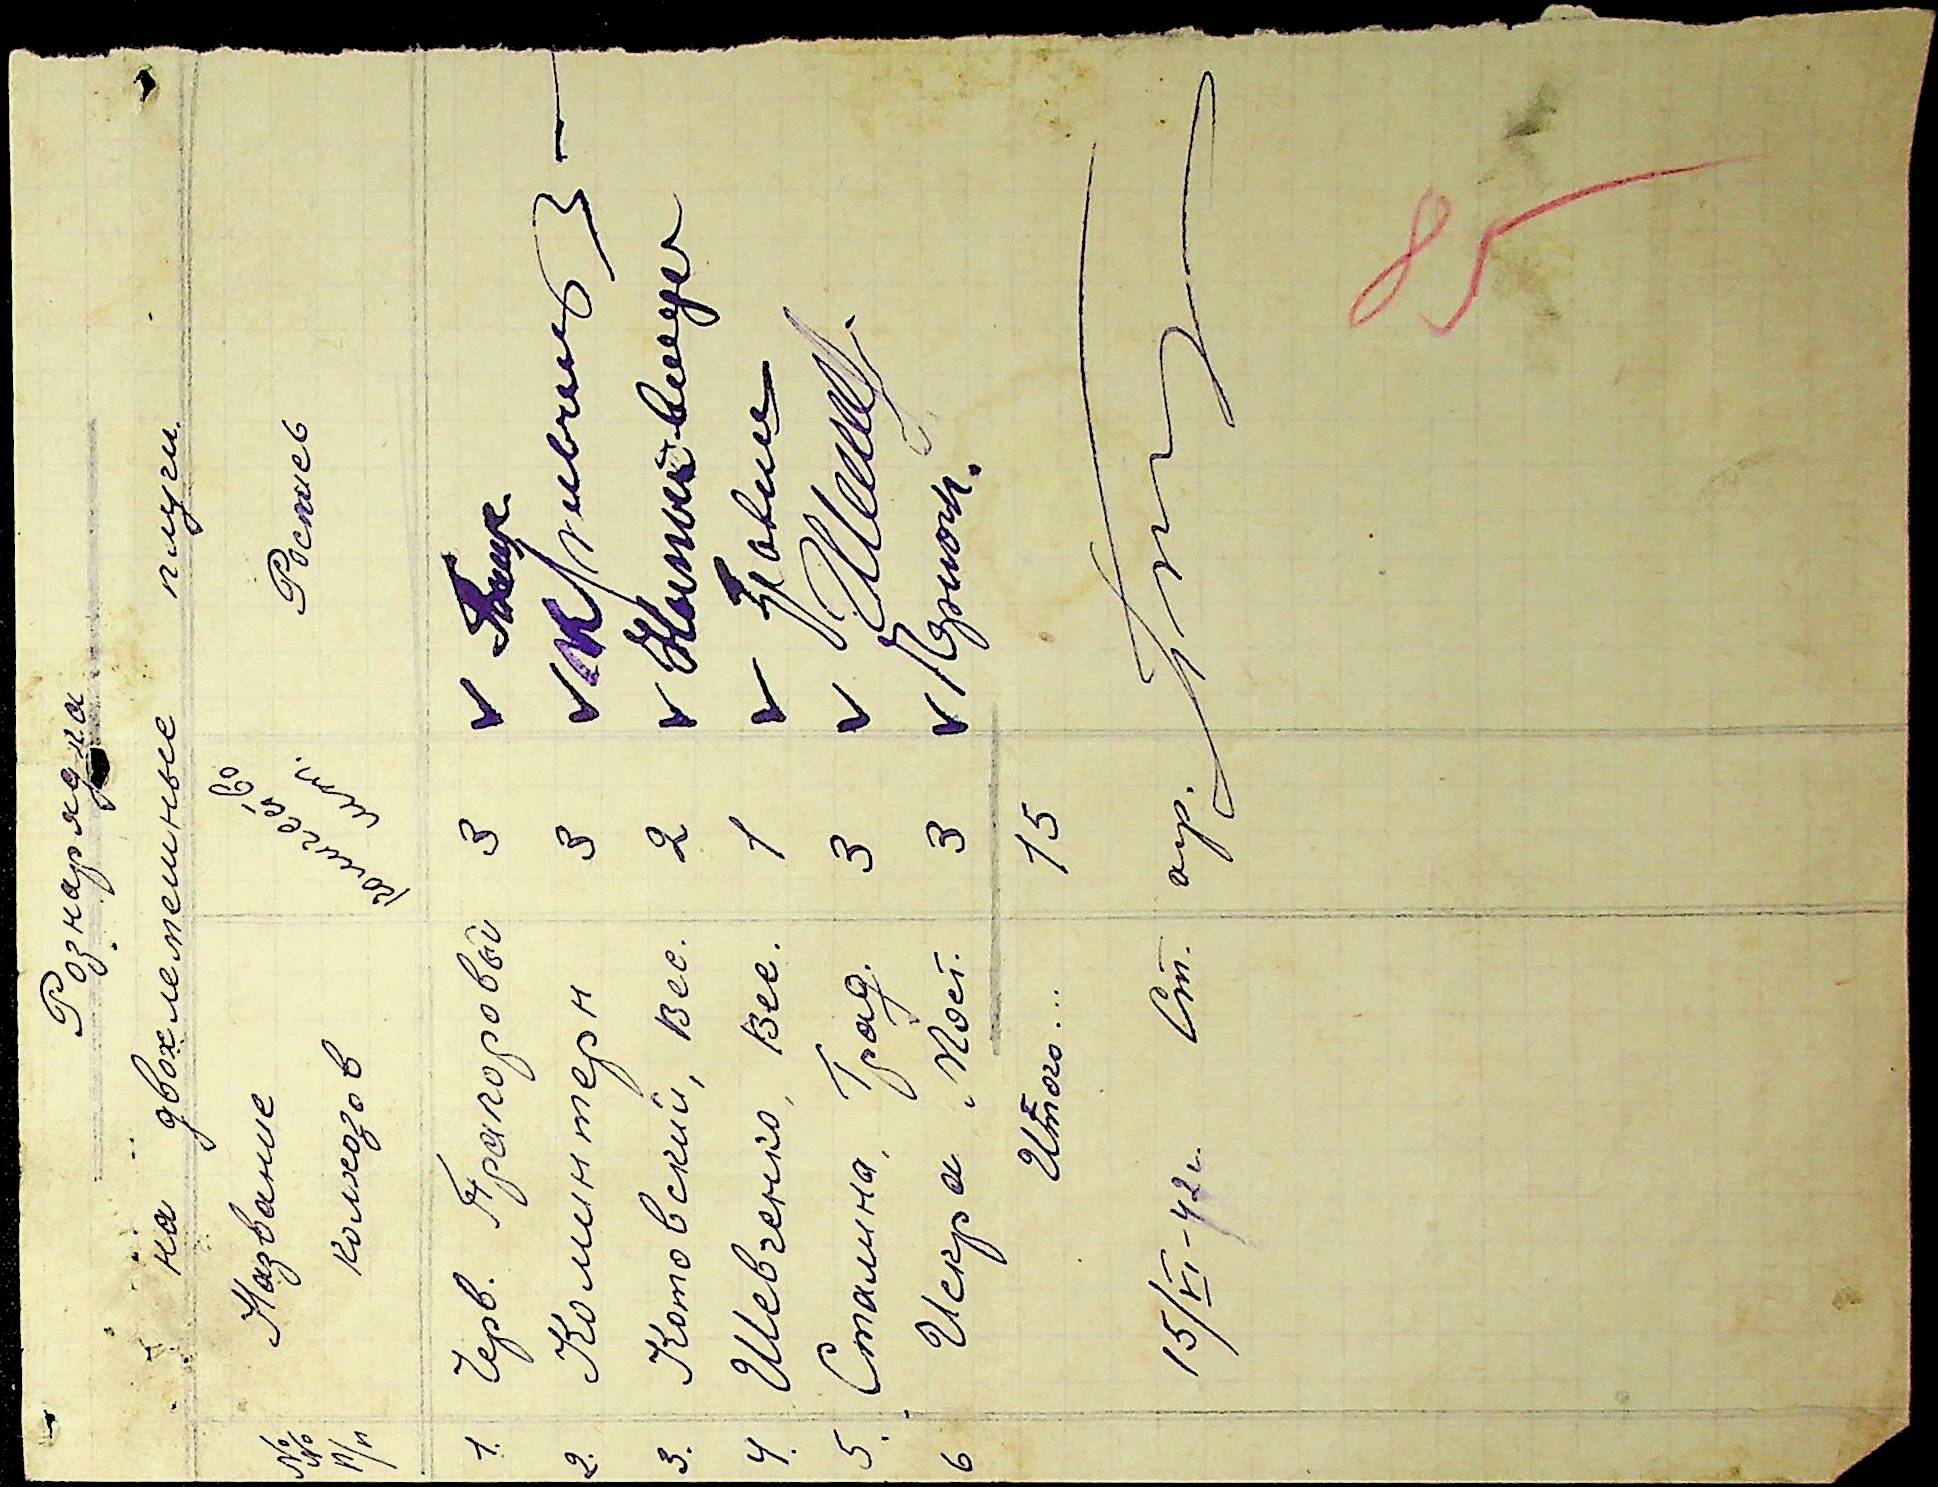 Рознарядка
на двохлемешные плуги.
№№ п/п Название колхозов количество шт. Роспись
1. Черв. Тракторовый 3
2. Коминтерн 3
3. Котовский, Вес. 2
4. Шевченко, Вес. 1
5. Сталина, Град. 3
6 Искра, Пост. 3
Итого... 15
15/VI-42 г. Ст. агр.
85